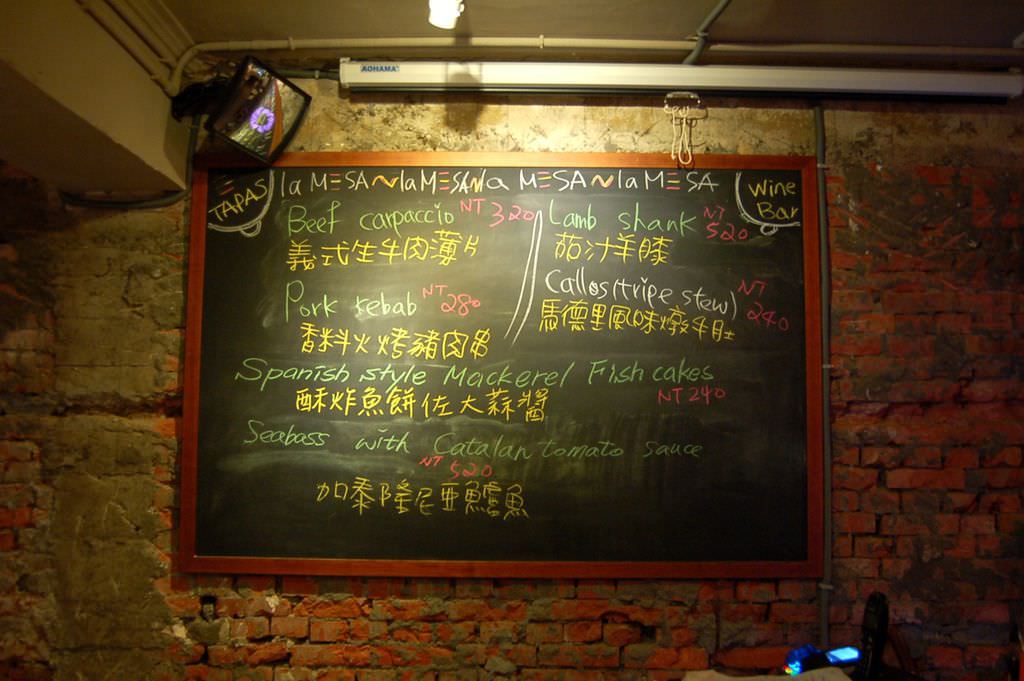 AOHAMA
TAPAS
la MESA~la MESA~la MESA~la MESA
Wine
Bar
Beef carpaccio NT 320
義式生牛肉薄片
Lamb shank NT 520
茄汁羊膝
Pork kebab NT 280
香料火烤豬肉串
Callos(tripe stew) NT 240
馬德里風味燉牛肚
Spanish style Mackerel Fish cakes
NT 240
酥炸魚餅佐大蒜醬
Seabass with Catalan tomato sauce
NT 520
加泰隆尼亞鱸魚